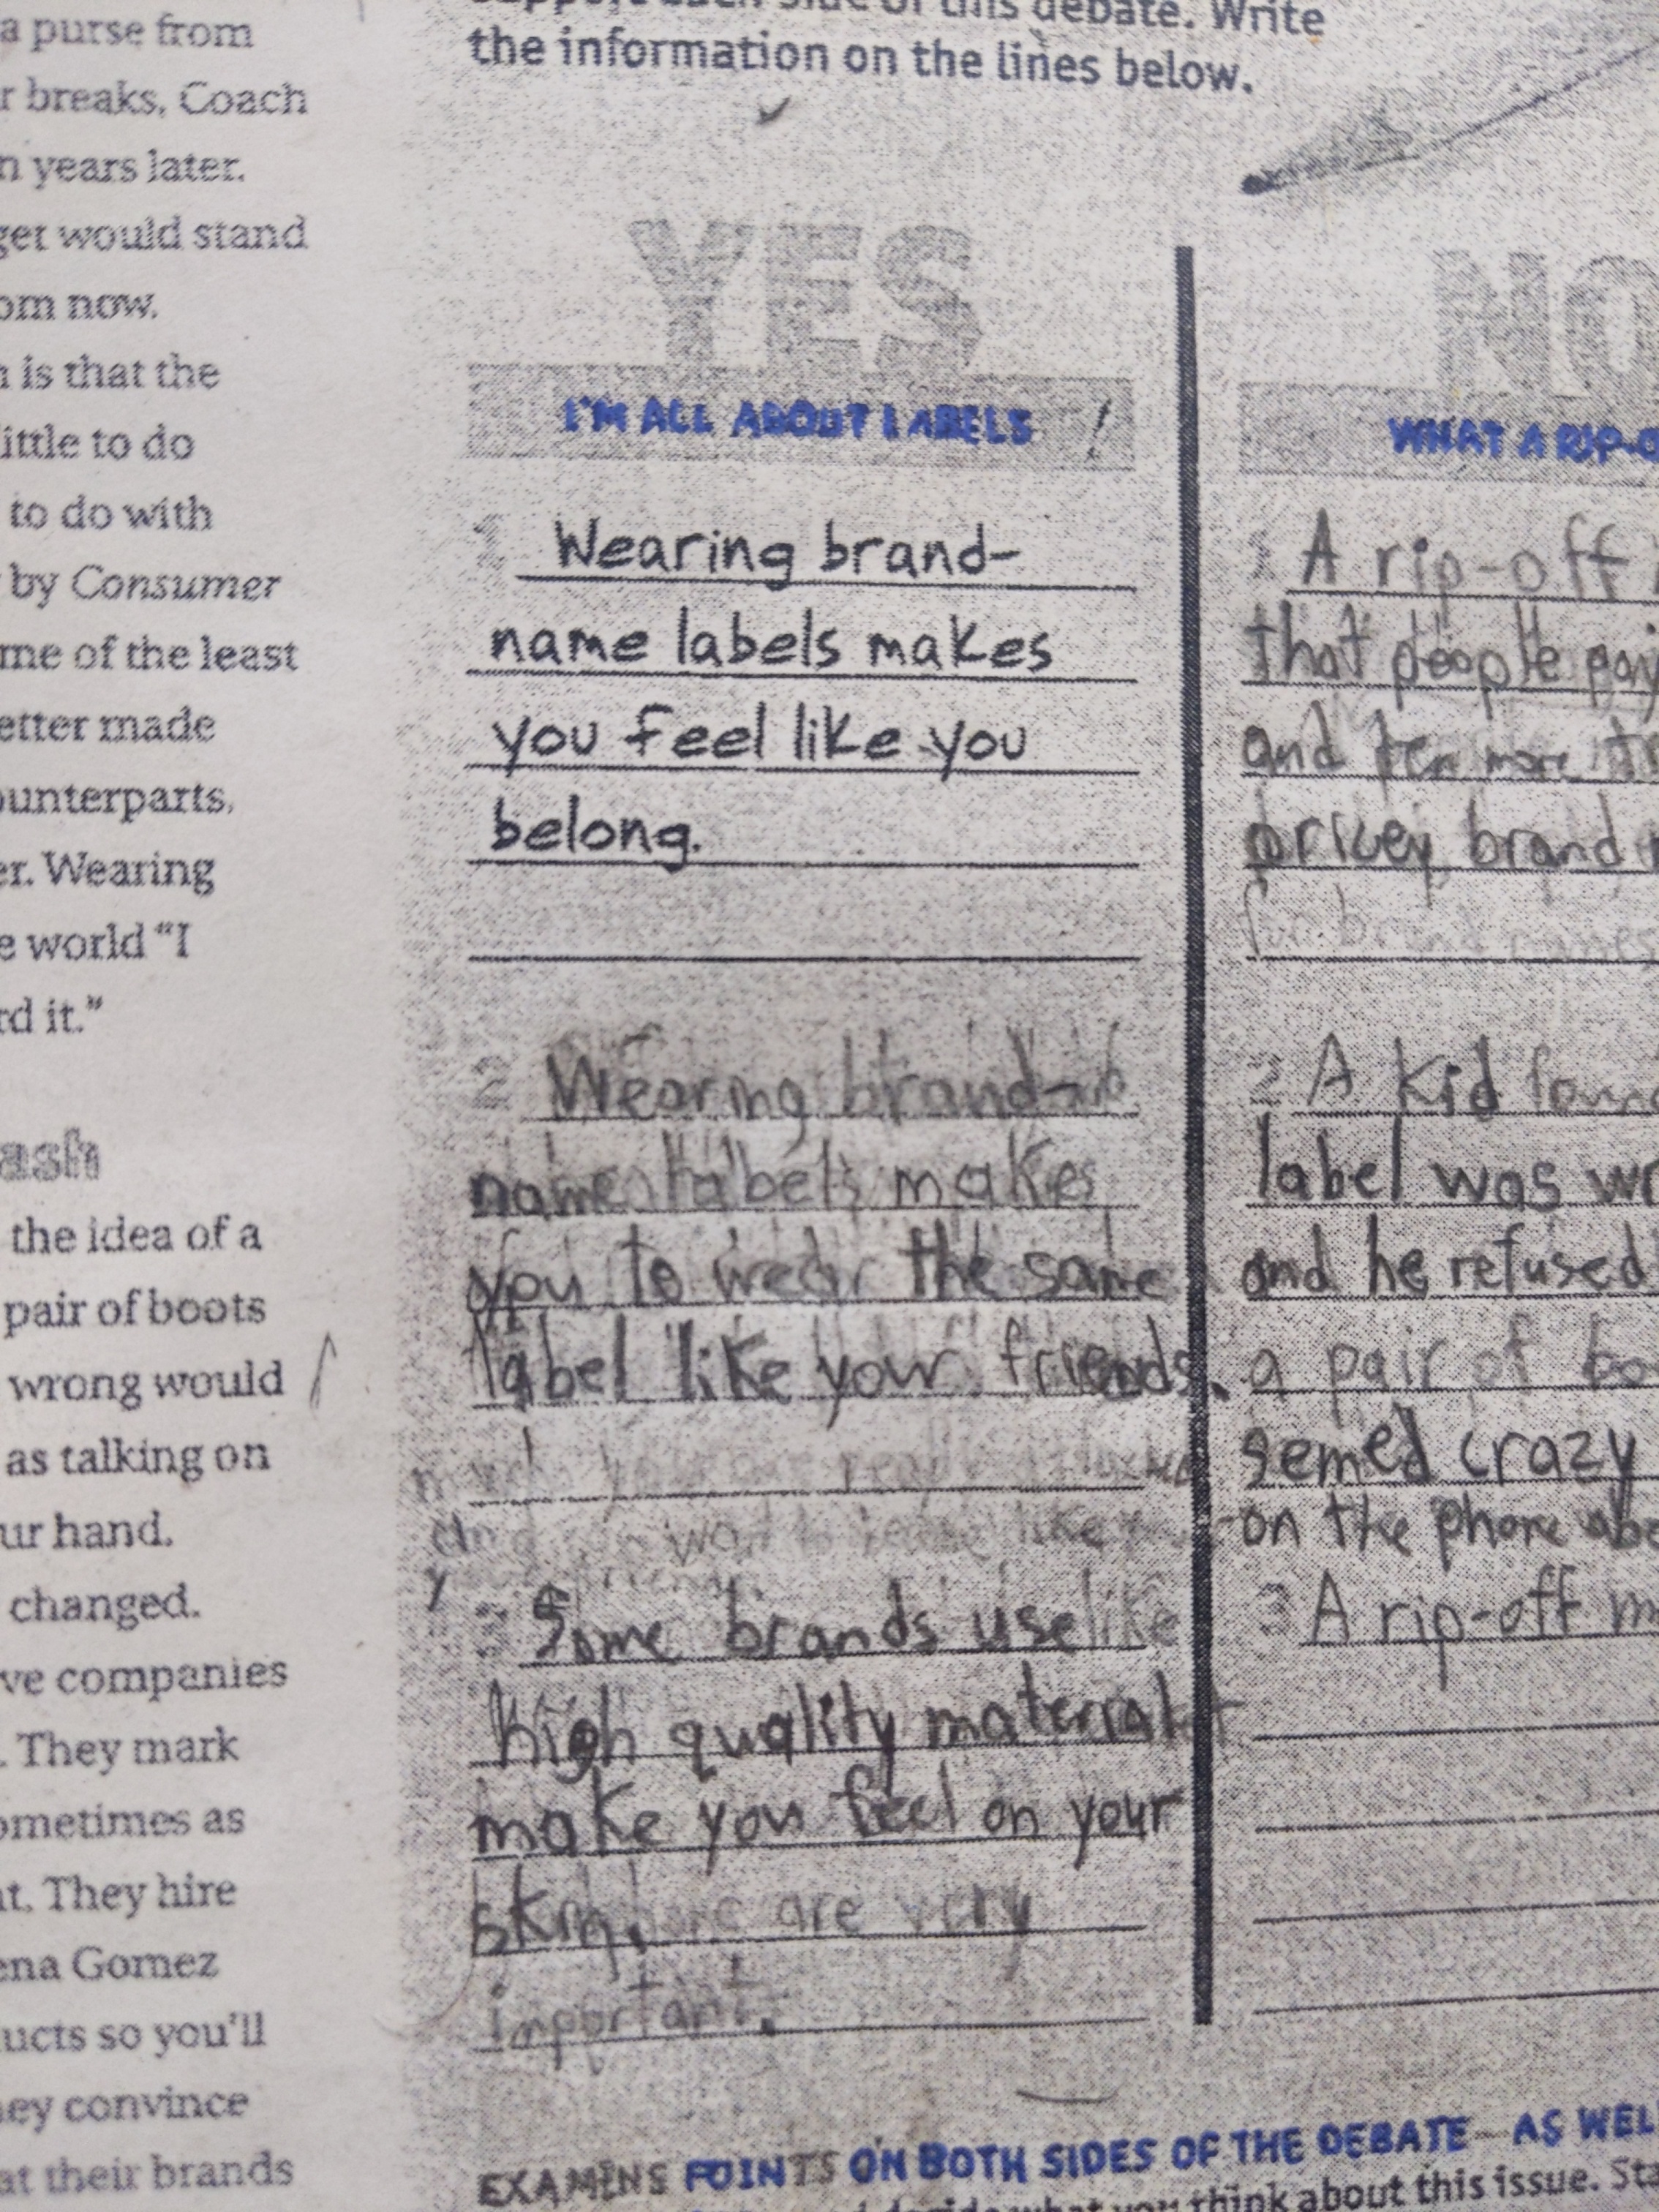 a purse from
r breaks, Coach
n years later.
get would stand
om now.
n is that the
ittle to do
to do with
by Consumer
me of the least
etter made
ounterparts.
er. Wearing
e world “I
rd it.”
ash
the idea of a
pair of boots
wrong would
as talking on
ur hand.
changed.
ve companies
. They mark
ometimes as
at. They hire
ena Gomez
ucts so you'll
ey convince
at their brands
support each side of this debate. Write
the information on the lines below.
YES
I'M ALL ABOUT LABELS !
1 Wearing brand-
name labels makes
you feel like you
belong.
2 Wearing brand-
name labels makes
you to wear the same
label like your friends.
3 Some brands use like
high quality material
make you feel on your
skin. are very
important.
NO
WHAT A RIP-O
1 A rip-off
that people pay
and ten more
pricey brand
for brand names
2 A kid found
label was wr
and he refused
a pair of bo
semed crazy
on the phone abo
3 A rip-off m
EXAMINS POINTS ON BOTH SIDES OF THE DEBATE—AS WEL
decide what you think about this issue. Sta